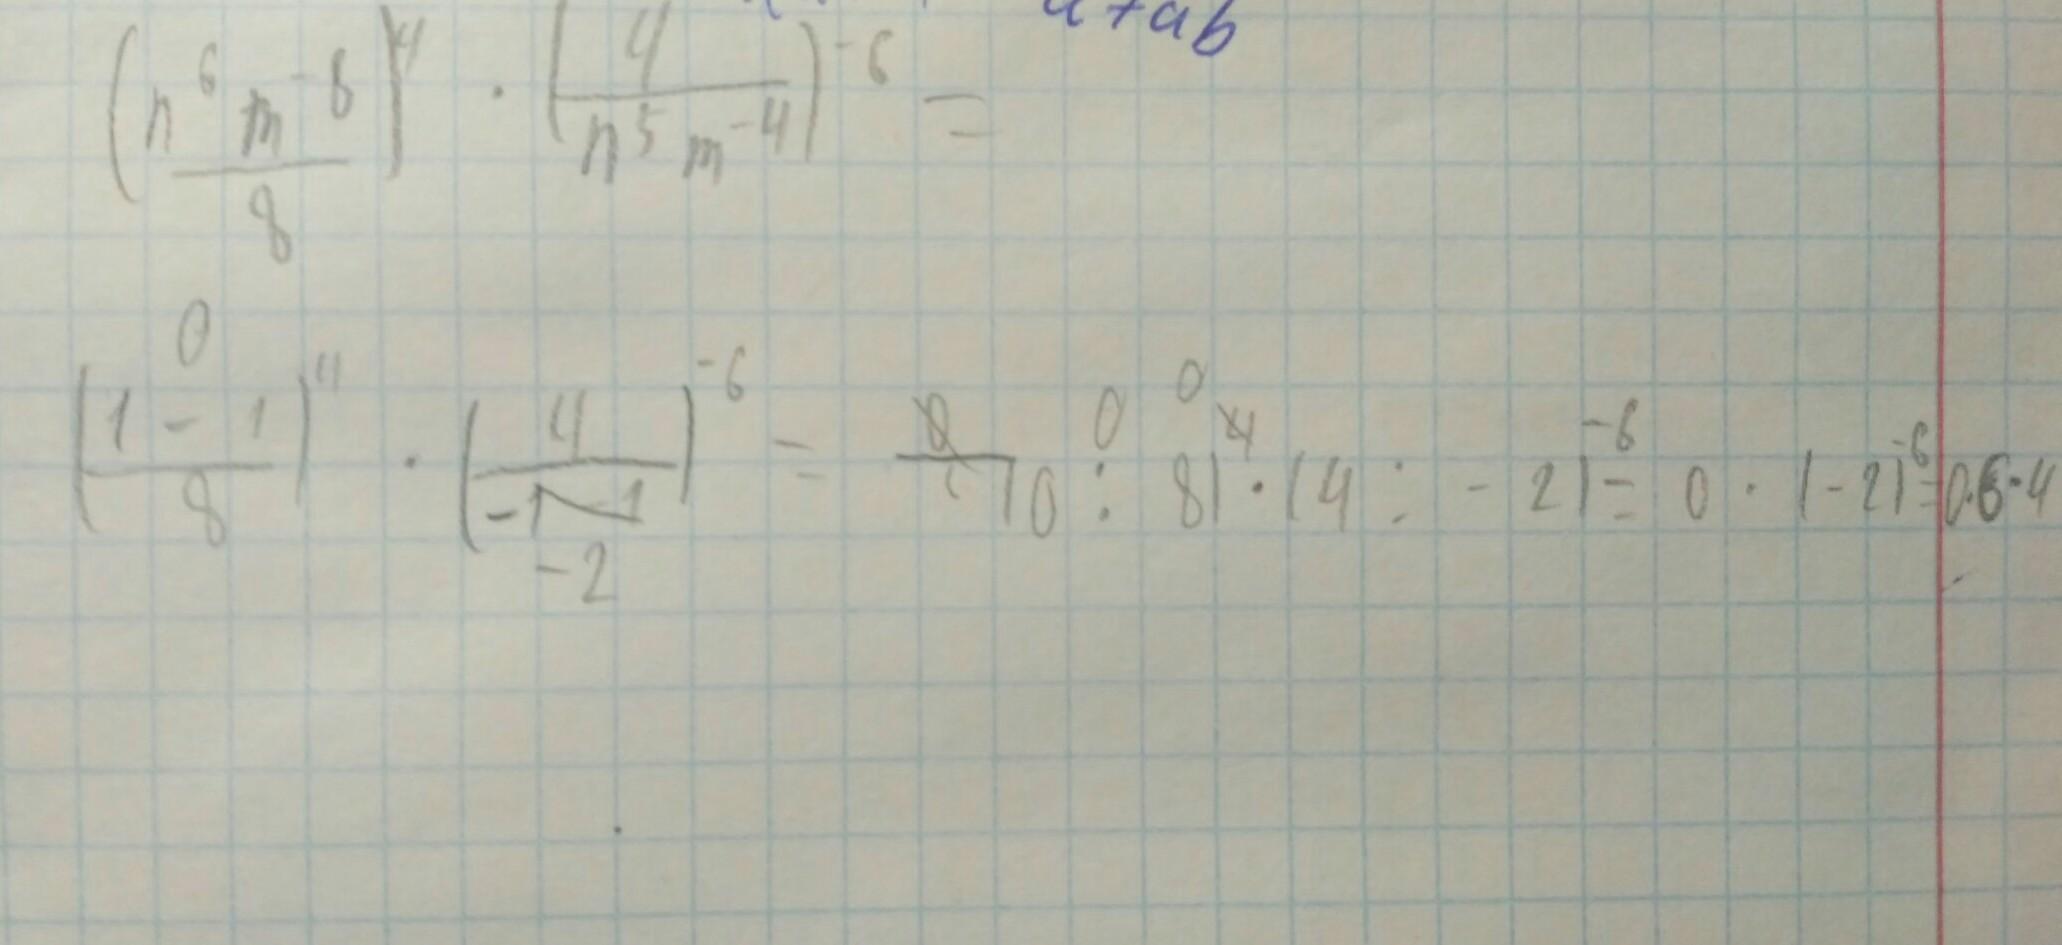 a+ab
(n⁶m⁻⁶/8)⁴ · (4/(n⁵m⁻⁴))⁻⁶ =
0
((1 - 1)/8)⁴ · (4/(-1-1))⁻⁶ = 0 : 8)⁴ · (4 : -2)⁻⁶ = 0 · (-2)⁻⁶ = 0.6·4
-2